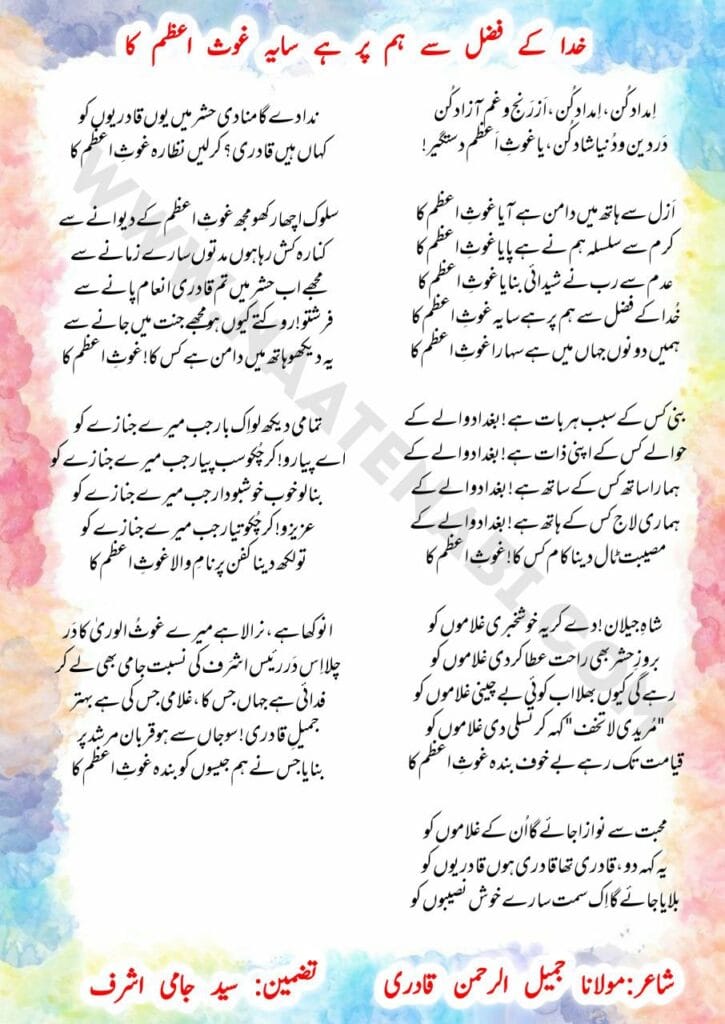 خدا کے فضل سے ہم پر ہے سایہ غوث اعظم کا
اِمداد کُن، اِمداد کُن، اَز رَنج و غم آزاد کُن
دَر دین و دُنیا شاد کُن، یا غوثِ اَعظم دستگیر!
اَزل سے ہاتھ میں دامن ہے آیا غوثِ اعظم کا
کرم سے سلسلہ ہم نے ہے پایا غوثِ اعظم کا
عدم سے رب نے شیدائی بنایا غوثِ اعظم کا
خُدا کے فضل سے ہم پر ہے سایہ غوثِ اعظم کا
ہمیں دونوں جہاں میں ہے سہارا غوثِ اعظم کا
بنی کس کے سبب ہر بات ہے! بغداد والے کے
حوالے کس کے اپنی ذات ہے! بغداد والے کے
ہمارا ساتھ کس کے ساتھ ہے! بغداد والے کے
ہماری لاج کس کے ہاتھ ہے! بغداد والے کے
مصیبت ٹال دینا کام کس کا! غوثِ اعظم کا
شاہِ جیلان! دے کر یہ خوشخبری غلاموں کو
بروزِ حشر بھی راحت عطا کر دی غلاموں کو
رہے گی کیوں بھلا اب کوئی بے چینی غلاموں کو
"مُریدی لا تخف" کہہ کر تسلی دی غلاموں کو
قیامت تک رہے بے خوف بندہ غوثِ اعظم کا
محبت سے نوازا جائے گا اُن کے غلاموں کو
یہ کہہ دو، قادری تھا قادری ہوں قادریوں کو
بلایا جائے گا اِک سمت سارے خوش نصیبوں کو
ندا دے گا منادی حشر میں یوں قادریوں کو
کہاں ہیں قادری؟ کر لیں نظارہ غوثِ اعظم کا
سلوک اچھا رکھو مجھ غوثِ اعظم کے دیوانے سے
کنارہ کش رہا ہوں مدتوں سارے زمانے سے
مجھے اب حشر میں تم قادری انعام پانے سے
فرشتو! روکتے کیوں ہو مجھے جنت میں جانے سے
یہ دیکھو ہاتھ میں دامن ہے کس کا! غوثِ اعظم کا
تمامی دیکھ لو اِک بار جب میرے جنازے کو
اے پیارو! کر چُکو سب پیار جب میرے جنازے کو
بنا لو خوب خوشبودار جب میرے جنازے کو
عزیزو! کر چُکو تیار جب میرے جنازے کو
تو لکھ دینا کفن پر نامِ والا غوثِ اعظم کا
انوکھا ہے، نرالا ہے میرے غوثُ الوریٰ کا دَر
چلا اِس دَر رئیس اشرف کی نسبت جامی بھی لے کر
فدائی ہے جہاں جس کا، غلامی جس کی ہے بہتر
جمیلِ قادری! سو جاں سے ہو قربان مرشد پر
بنایا جس نے ہم جیسوں کو بندہ غوثِ اعظم کا
شاعر: مولانا جمیل الرحمن قادری
تضمین: سید جامی اشرف
WWW.NAATENABI.COM